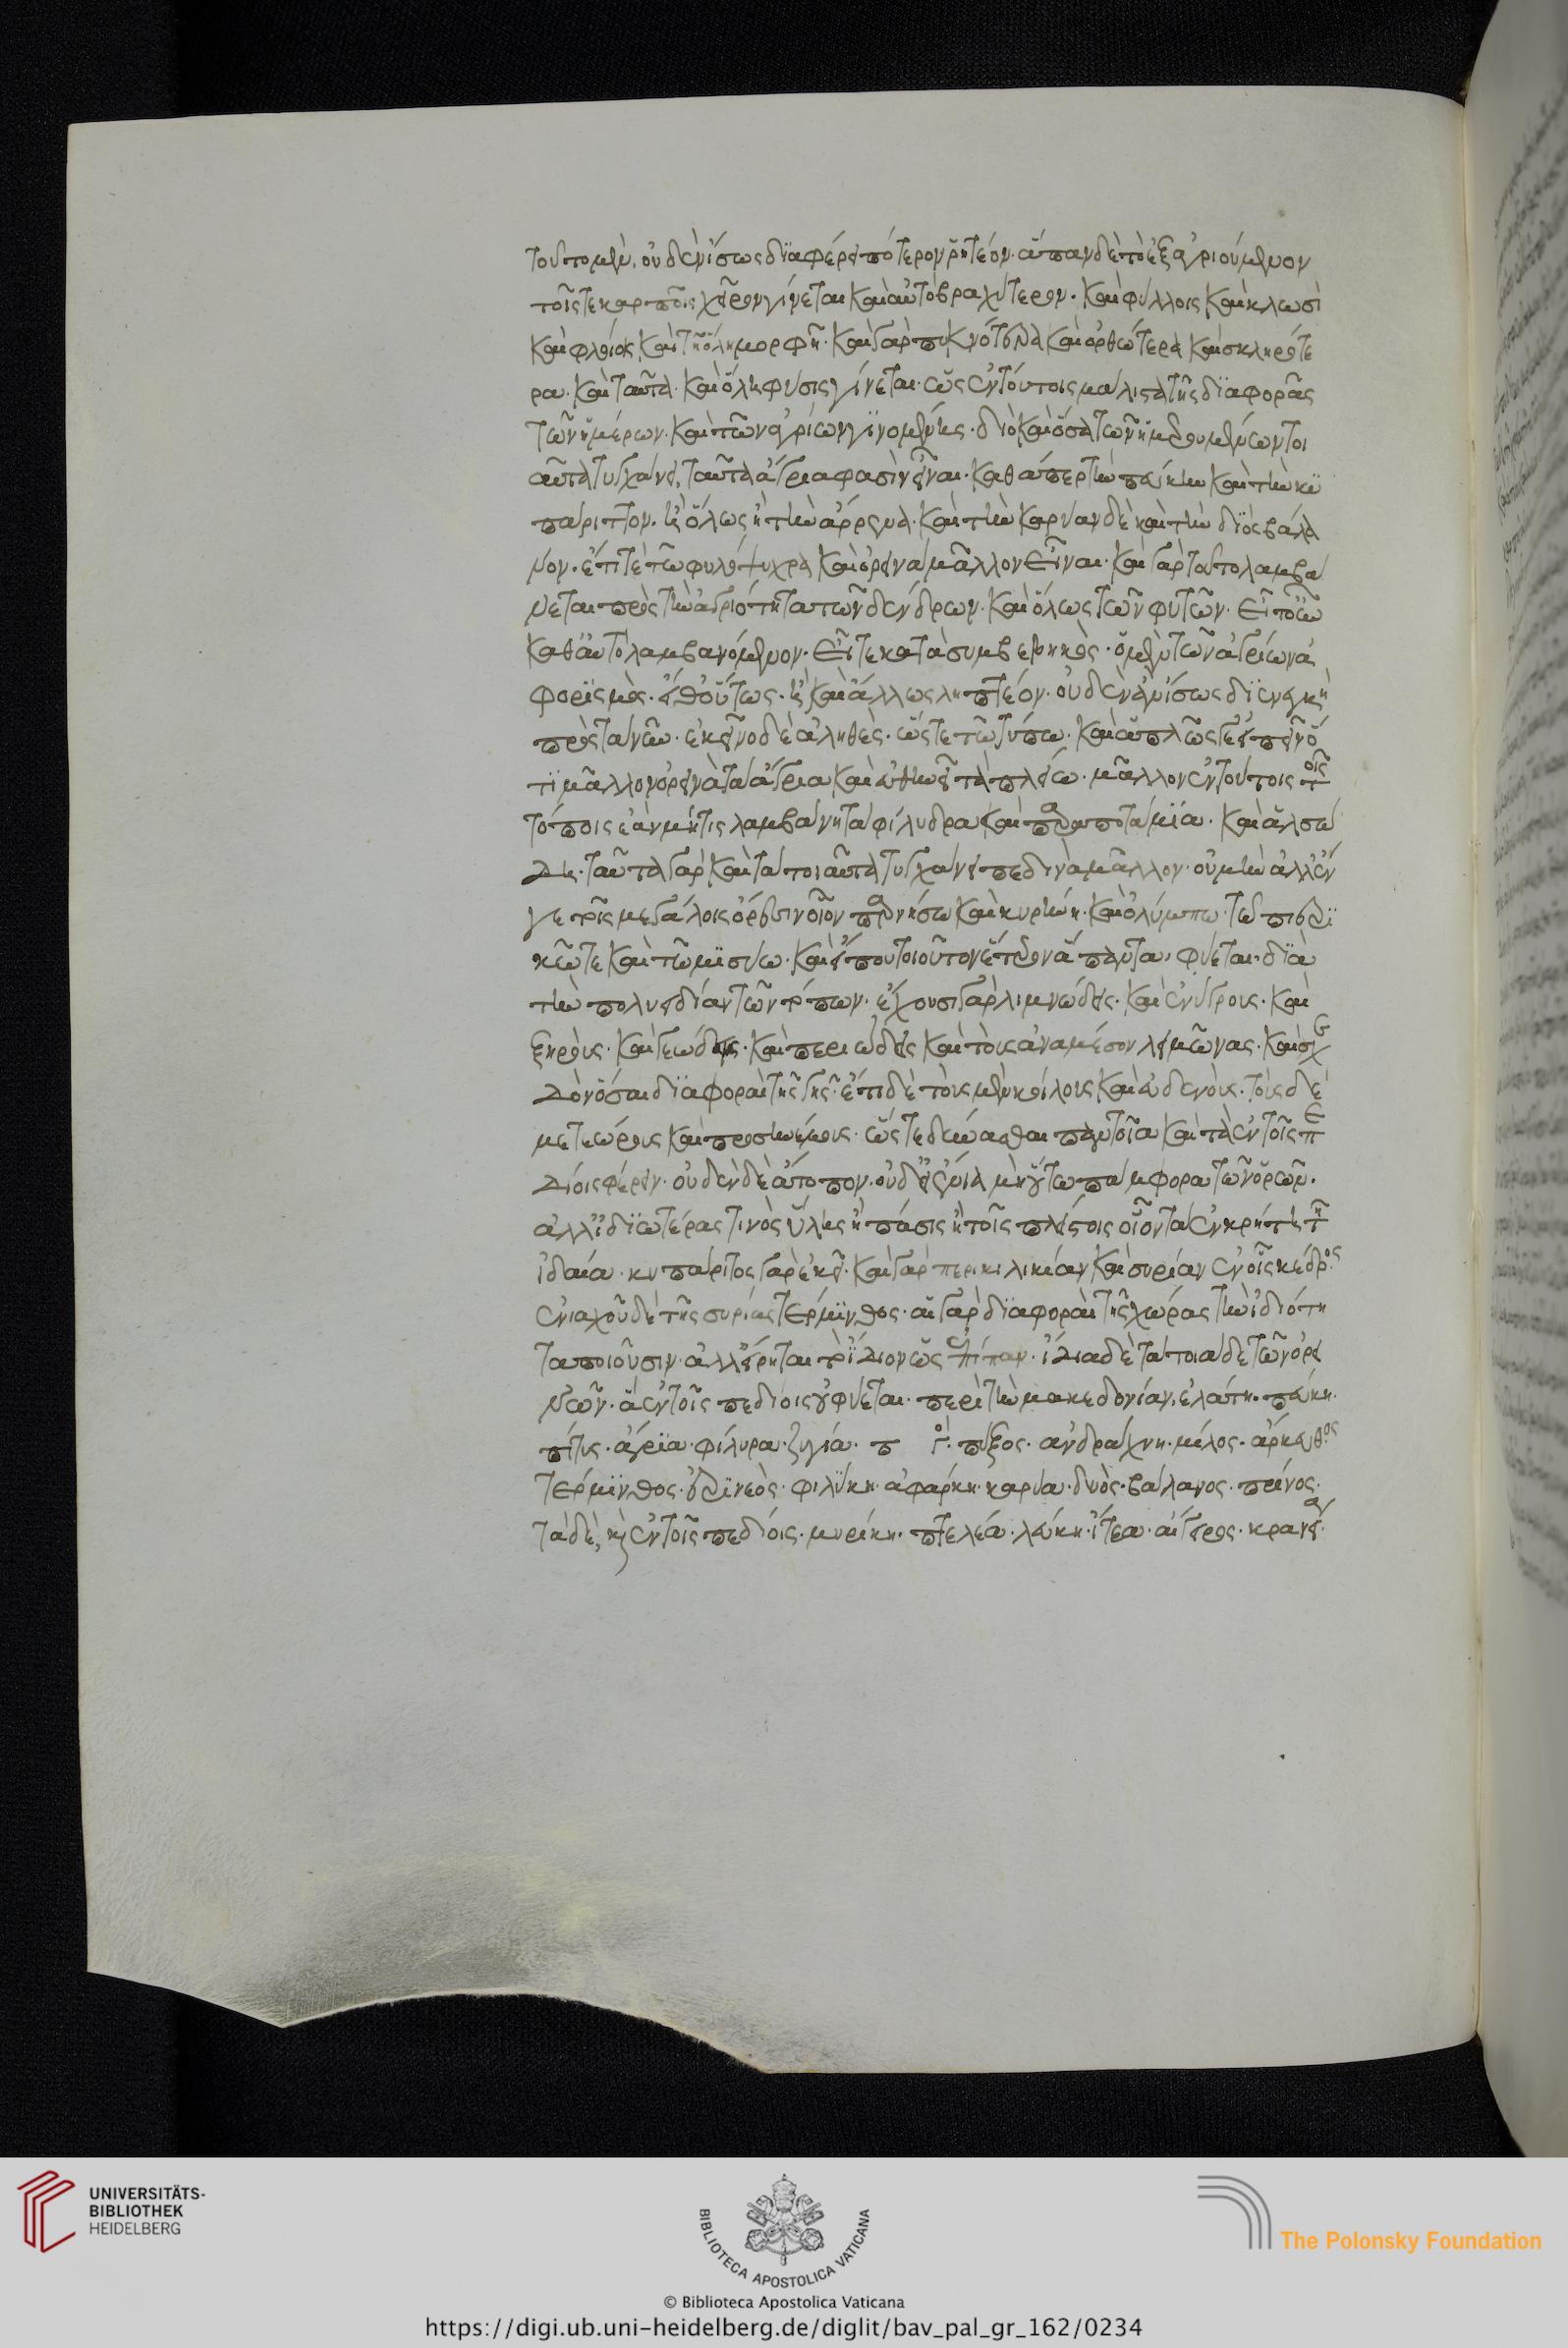 τοῦτο μὲν, οὐδὲν ἴσως διαφέρει πότερον ῥητέον. ἅπαν δὲ τὸ ἐξαγριούμενον
τοῖς τε καρποῖς χεῖρον γίνεται καὶ αὐτὸ βραχύτερον. καὶ φύλλοις καὶ κλωσὶ
καὶ φλοιῶ καὶ τῆ ὅλη μορφῆ. καὶ γὰρ πυκνότερα καὶ ὀρθώτερα καὶ σκληρότε
ρα. καὶ ταῦτα. καὶ ὅλη φύσις γίνεται. ὡς ἐν τούτοις μάλιστα τῆς διαφορᾶς
τῶν ἡμέρων. καὶ τῶν ἀγρίων γινομένης. διὸ καὶ ὅσα τῶν ἡμερουμένων τοι
αῦτα τυγχάνει, ταῦτα ἄγρια φασὶν εἶναι. καθάπερ τὴν πεύκην καὶ τὴν κυ
πάριττον. ἢ ὅλως ἢ τὴν ἄρρενα. καὶ τὴν καρύαν δὲ καὶ τὴν διὸς βάλα
νον. ἔτι τὲ τῶ φιλόψυχρα καὶ ὀρεινὰ μᾶλλον εἶναι. καὶ γὰρ τοῦτο λαμβά
νεται πρὸς τὴν ἀγριότητα τῶν δένδρων. καὶ ὅλως τῶν φυτῶν. εἴτ' οὖν
καθ' αὑτὸ λαμβανόμενον. εἴτε κατὰ συμβεβηκὸς. ὁ μὲν τῶν ἀγρίων ἀ
φορισμὸς. εἴθ' οὕτως. ἢ καὶ ἄλλως ληπτέον. οὐδὲν ἂν ἴσως διενέγκη
πρὸς τὰ νῦν. ἐκεῖνο δὲ ἀληθὲς. ὥς γε τῶ τύπω. καὶ ἁπλῶς γε εἰπεῖν ὅ
τι μᾶλλον ὀρεινὰ τὰ ἄγρια καὶ εὐθενεῖ τὰ πλείω. μᾶλλον ἐν τούτοις τοῖς
τόποις ἐὰν μή τις λαμβάνη τὰ φίλυδρα καὶ παραποτάμια. καὶ ἀλσώ
δη. ταῦτα γὰρ καὶ τὰ τοιαῦτα τυγχάνει πεδινὰ μᾶλλον. οὐ μὴν ἀλλ' ἔν
γε τοῖς μεγάλοις ὄρεσιν οἷον παρνησῶ καὶ κυλλήνη. καὶ ὀλύμπω. τῶ πιερι
κῶ τε καὶ τῶ μυσίω. καὶ εἴπου τοιοῦτον ἕτερον ἅπαντα, φύεται. διὰ
τὴν πολυειδίαν τῶν τόπων. ἔχουσι γὰρ λιμνώδεις. καὶ ἐνύγρους. καὶ
ξηρούς. καὶ γεώδεις. καὶ πετρώδεις καὶ τοὺς ἀναμέσον λειμῶνας. καὶ σχε
δὸν ὅσαι διαφοραὶ τῆς γῆς. ἔτι δὲ τοὺς μὲν κοίλους καὶ εὐδεινοὺς. τοὺς δὲ
μετεώρους καὶ προσηνέμους. ὥστε δύνασθαι παντοῖα καὶ τὰ ἐν τοῖς πε
δίοις φέρειν. οὐδὲν δὲ ἄτοπον. οὐδ' εἰ ἔνια μὴ οὕτω πάμφορα τῶν ὀρῶν.
ἀλλ' ἰδιωτέρας τινὸς ὕλης ἢ πάσης ἢ τοῖς πλείστοις οἷον τὰ ἐν κρήτη τῆ
ἰδαία. κυπάριττος γὰρ ἐκεῖ. καὶ τὰ περὶ κιλικίαν καὶ συρίαν ἐν οἷς κέδρος.
ἐνιαχοῦ δὲ τῆς συρίας τέρμινθος. αἱ γὰρ διαφοραὶ τῆς χώρας τὴν ἰδιότη
τα ποιοῦσιν. ἀλλ' εἴρηται τὸ ἴδιον ὡς ἐπίπαν. ἴδια δὲ τὰ τοιάδε τῶν ὀρει
νῶν. ἃ ἐν τοῖς πεδίοις οὐ φύεται. περὶ τὴν μακεδονίαν, ἐλάτη. πεύκη.
πίτυς. ἀγρία. φίλυρα. ζυγία. πύξος. ἀνδράχνη. μίλος. ἄρκευθος
τέρμινθος. ἐρινεὸς. φιλύκη. ἀφάρκη. καρύα. διὸς. βάλανος. πρίνος.
τὰ δὲ, κἀν τοῖς πεδίοις. μυρίκη. πτελέα. λεύκη. ἰτέα. αἴγειρος. κράνεια.
UNIVERSITÄTS-
BIBLIOTHEK
HEIDELBERG
BIBLIOTECA APOSTOLICA VATICANA
The Polonsky Foundation
© Biblioteca Apostolica Vaticana
https://digi.ub.uni-heidelberg.de/diglit/bav_pal_gr_162/0234